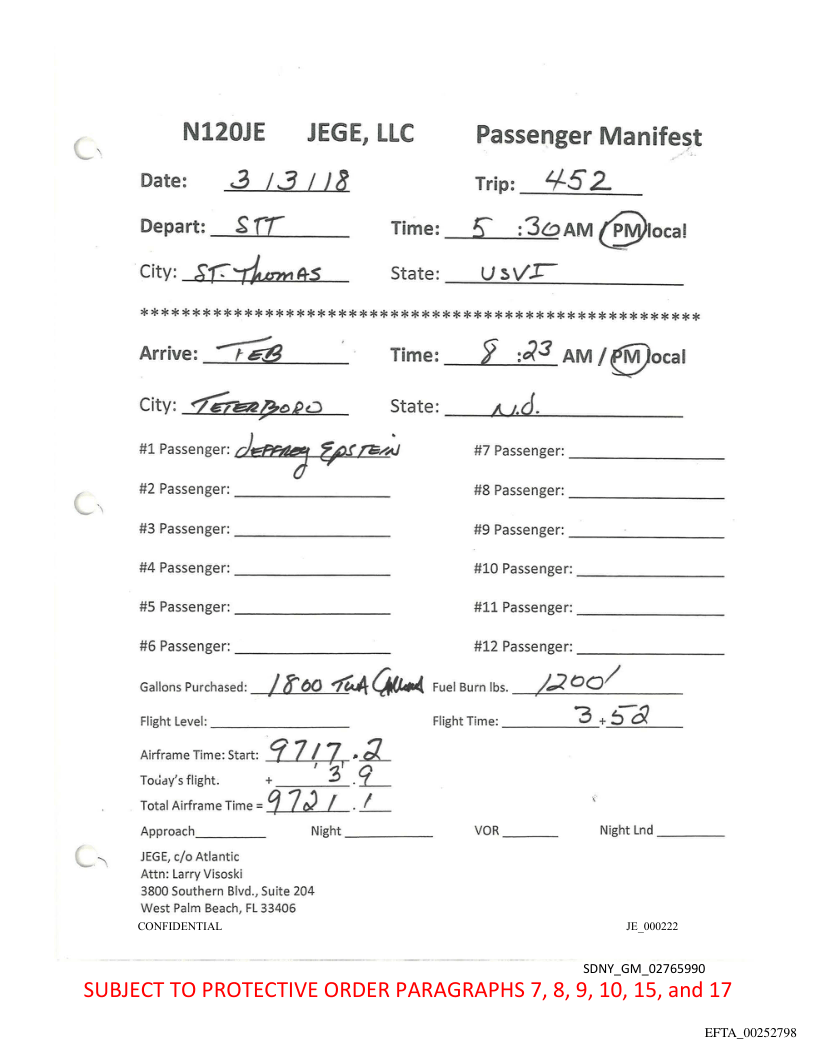 N120JE JEGE, LLC Passenger Manifest
Date: 3/3/18 Trip: 452
Depart: STT Time: 5:30 AM / PM local
City: ST. Thomas State: USVI
******************************************************
Arrive: TEB Time: 8:23 AM / PM local
City: TETERBORO State: N.J.
#1 Passenger: JEFFREY EPSTEIN #7 Passenger:
#2 Passenger: #8 Passenger:
#3 Passenger: #9 Passenger:
#4 Passenger: #10 Passenger:
#5 Passenger: #11 Passenger:
#6 Passenger: #12 Passenger:
Gallons Purchased: 1800 Fuel Burn lbs. 1200
Flight Level: Flight Time: 3+52
Airframe Time: Start: 9717.2
Today's flight. + 3.9
Total Airframe Time = 9721.1
Approach Night VOR Night Lnd
JEGE, c/o Atlantic
Attn: Larry Visoski
3800 Southern Blvd., Suite 204
West Palm Beach, FL 33406
CONFIDENTIAL JE_000222
SDNY_GM_02765990
SUBJECT TO PROTECTIVE ORDER PARAGRAPHS 7, 8, 9, 10, 15, and 17
EFTA_00252798